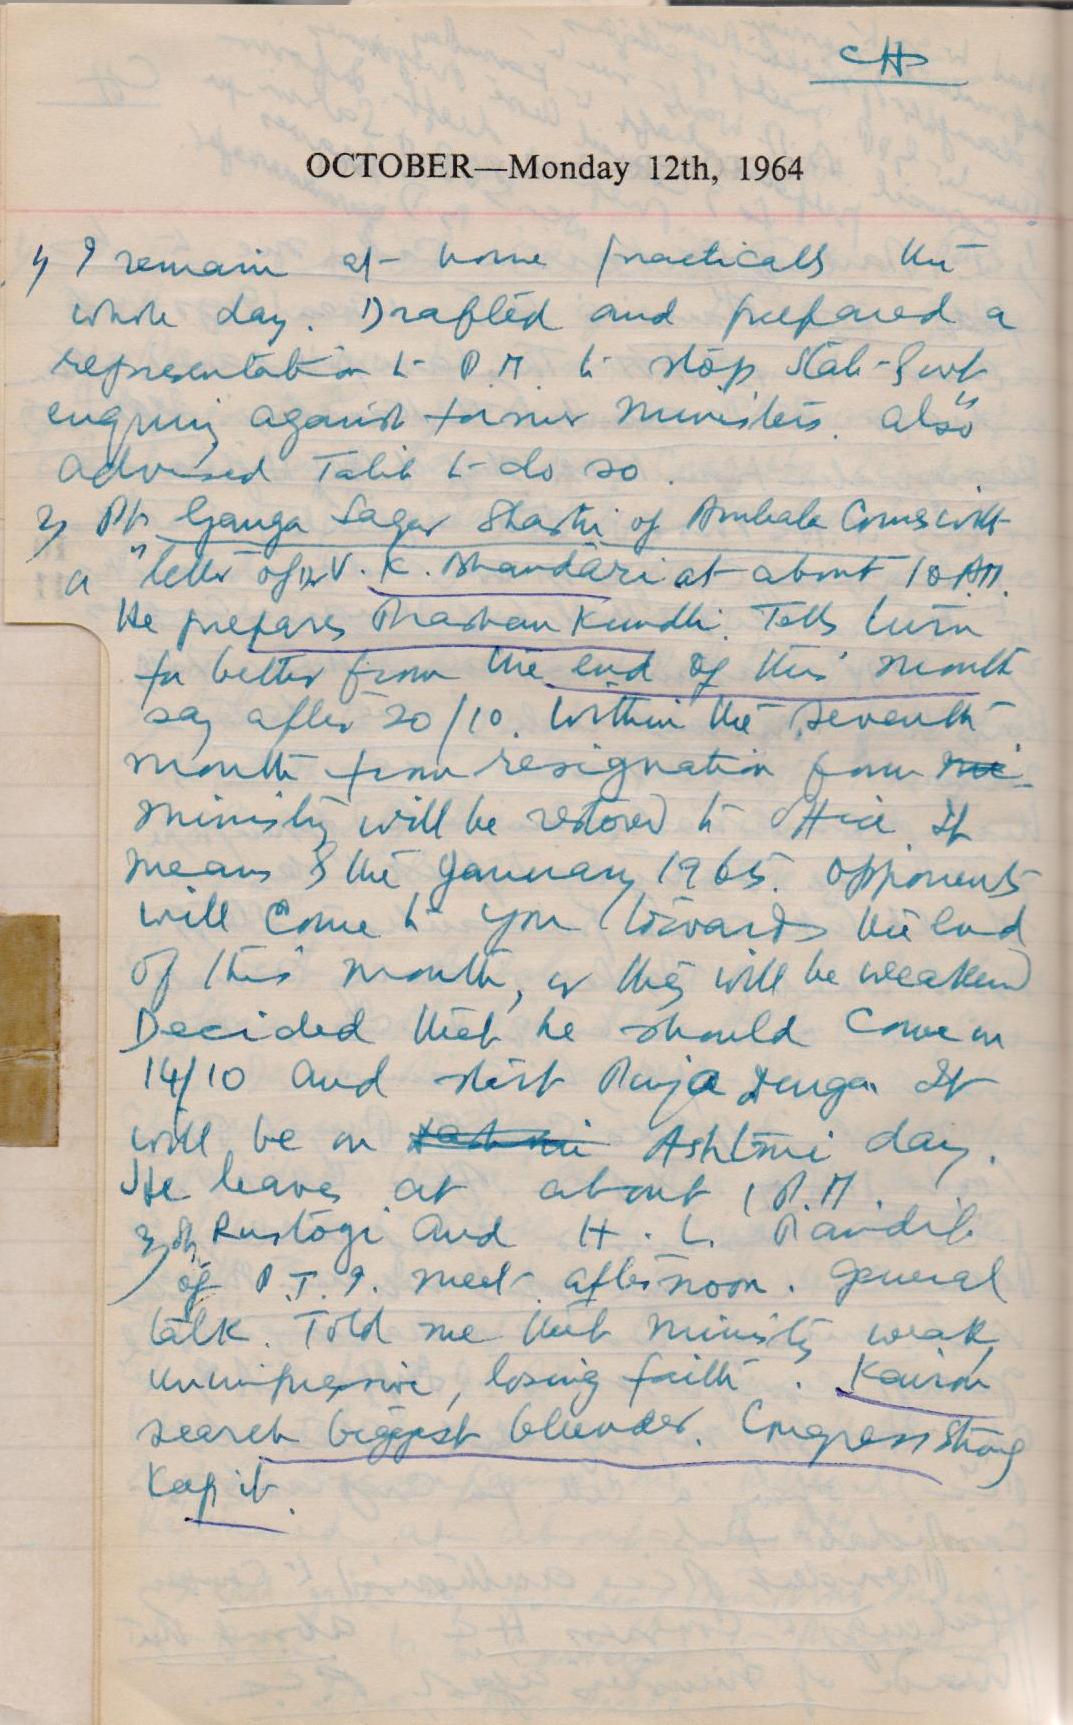 CH
OCTOBER—Monday 12th, 1964
1) I remain at home practically the
whole day. Drafted and prepared a
representation to P.M. to stop State-Govt
enquiry against former Ministers. also
advised Talib to do so.
2) Pt. Ganga Sagar Shastri of Ambala Comes with
a letter of Dr V. K. Bhandari at about 10 A.M.
He prepares Prashan Kundli. Tells turn
for better from the end of this month
say after 20/10. Within the seventh
month from resignation from mi
ministry will be restored to office. It
means 8 the January 1965. Opponents
will come to you towards the end
of this month, or they will be weakened
Decided that he should come on
14/10 and start Puja Durga. It
will be on Ashtmi day.
He leaves at about 1 P.M.
3) Sh. Rustogi and H. L.
of P.T.I. meet afternoon. General
talk. Told me that ministry weak,
unimpressive, losing faith. Kairon
search biggest blunder. Congress strong
Keep it.